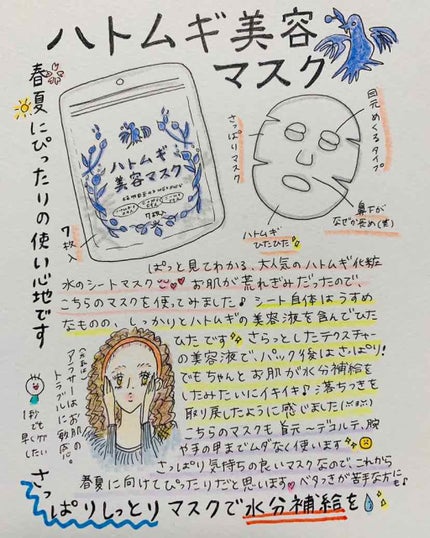 ハトムギ美容
マスク
春夏にぴったりの使い心地です
ハトムギ
美容マスク
7枚入
7枚入
さっぱりマスク
目元めくるタイプ
鼻下が
なぜか長め(笑)
ハトムギ
ひたひた
ぱっと見てわかる、大人気のハトムギ化粧
水のシートマスク お肌が荒れぎみだったので、
こちらのマスクを使ってみました♪ シート自体はうすめ
なものの、しっかりとハトムギの美容液を含んでひた
ひたです さらっとしたテクスチャー
の美容液で、パック後はさっぱり!
でもちゃんとお肌が水分補給を
したみたいにイキイキ♪落ちつきを
取り戻したように感じました
こちらのマスクも首元〜デコルテ、腕
や手の甲までムダなく使います
さっぱり気持ちの良いマスクなので、これから
春夏に向けてぴったりだと思います ベタつきが苦手な方にも♪
アラサーはお肌の
トラブルに敏感。
1秒でも
早く介入
したい
さっぱりしっとりマスクで水分補給を